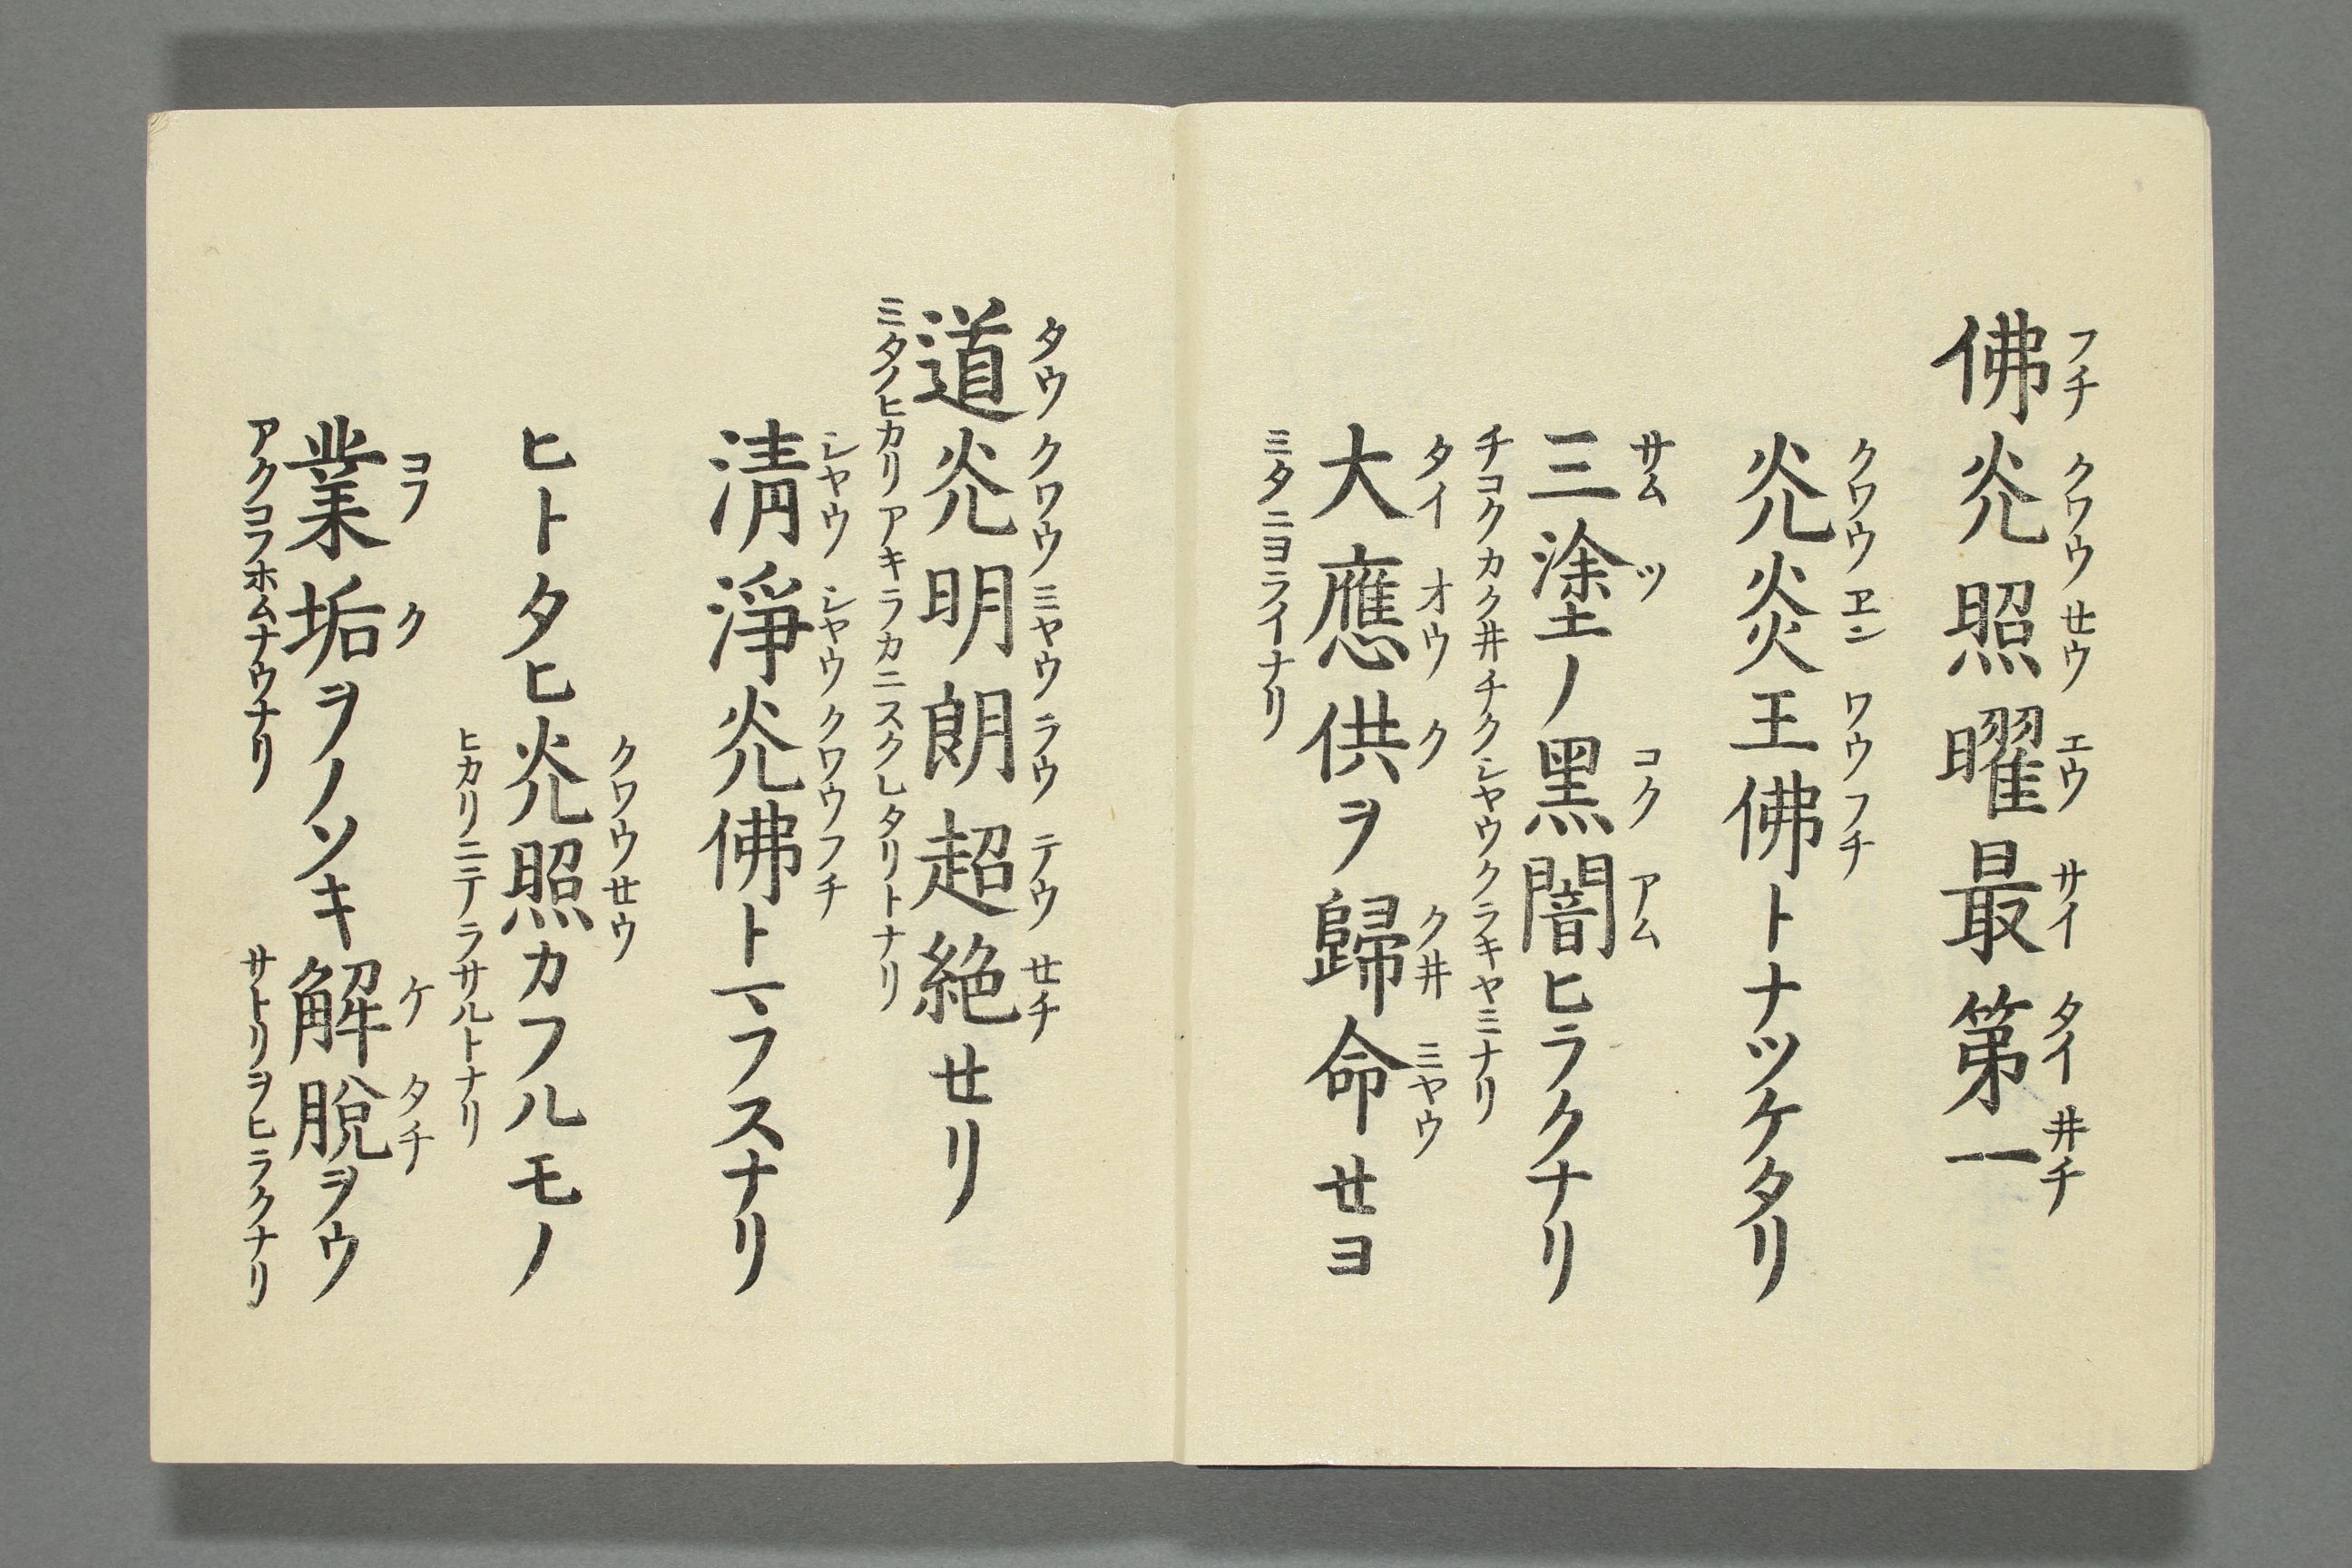 フチ クワウ せウ エウ サイ タイ 井チ
佛灮照曜最第一
クワウ ヱン ワウ フチ
灮炎王佛トナツケタリ
サム ツ コク アム
三塗ノ黑闇ヒラクナリ
チコクカク井チクシヤウクラキヤミナリ
タイ オウ ク ク井 ミヤウ
大應供ヲ歸命せヨ
ミタニヨライナリ
タウ クワウ ミヤウ ラウ テウ せチ
道灮明朗超絶せリ
ミタノヒカリアキラカニスクレタリトナリ
シヤウ シヤウ クワウ フチ
淸淨灮佛トマフスナリ
クワウ せウ
ヒトタヒ灮照カフルモノ
ヒカリニテラサルトナリ
ヨフ ク ケ タチ
業垢ヲノソキ解脫ヲウ
アクコフホムナウナリ サトリヲヒラクナリ